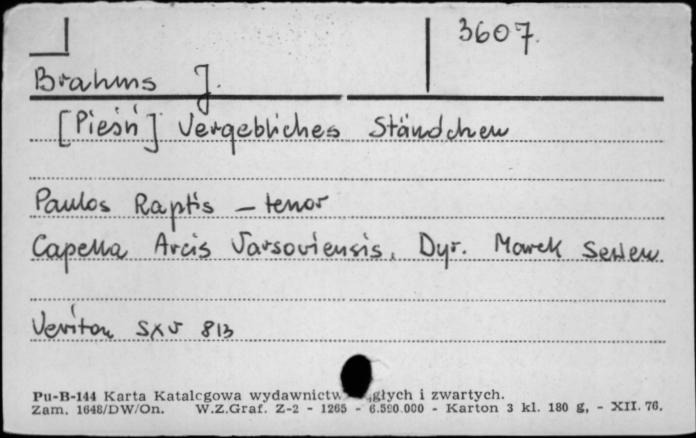 3607.
Brahms J.
[Pieśń] Vergebliches Ständchen
Paulos Raptis – tenor
Capella Arcis Varsoviensis. Dyr. Marek Sewen
Veriton SXV 813
Pu-B-144 Karta Katalogowa wydawnictw głych i zwartych.
Zam. 1648/DW/On. W.Z.Graf. Z-2 - 1265 - 6.590.000 - Karton 3 kl. 180 g, - XII. 76.